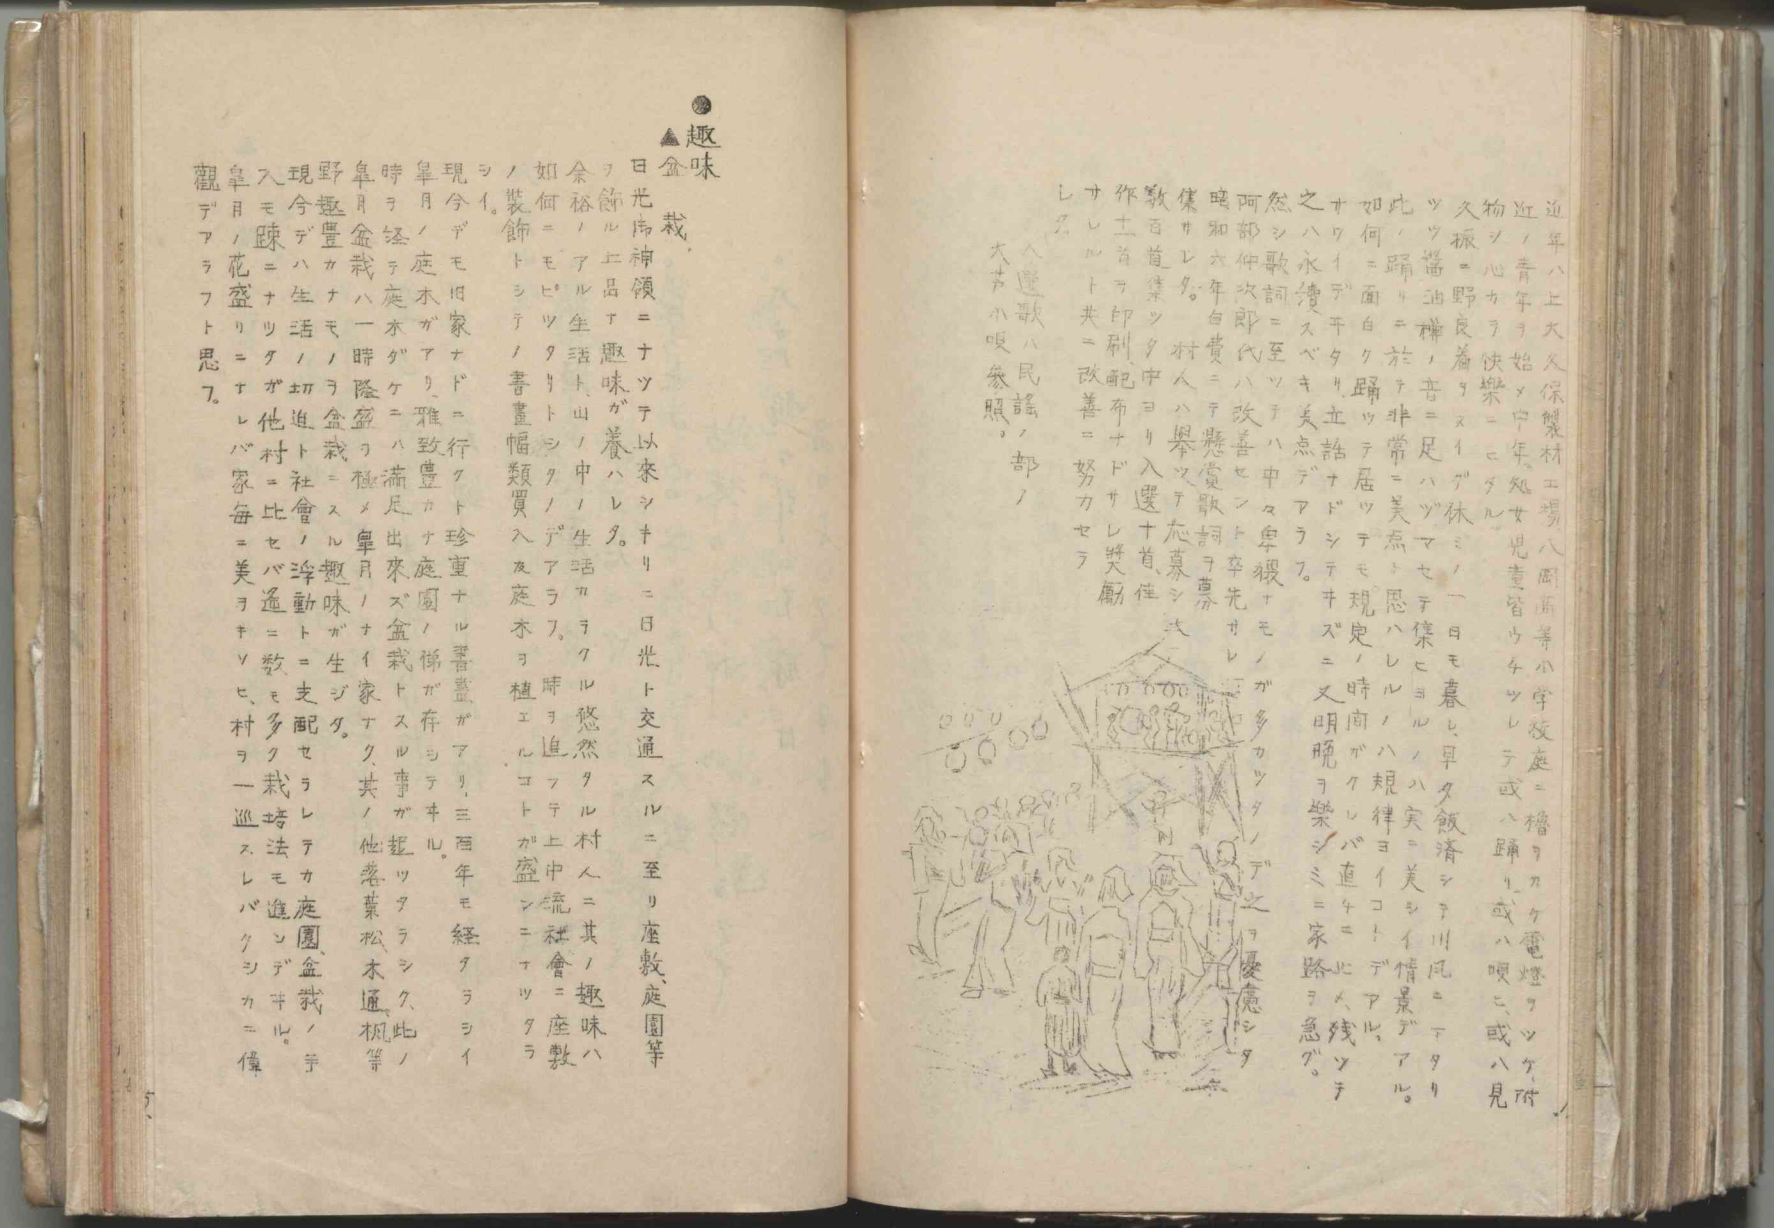 近年ハ上大久保製材工場八岡高等小学校庭ニ櫓ヲカケ電燈ヲツケ、附
近ノ青年ヲ始メ中年、処女児童皆ウチツレテ或ハ踊リ、或ハ唄ヒ、或ハ見
物シ心カラ快樂ニヒタル
久振ニ野良着ヲヌイダ休ミノ一日モ暮レ、早夕飯済シテ川風ニアタリ
ツツ醤油樽ノ音ニ足ハヅマセテ集ヒヨルノハ実ニ美シイ情景デアル。
此ノ踊リニ於テ非常ニ美点ト思ハレルノハ規律ヨイコトデアル、
如何ニ面白ク踊ツテ居ツテモ、規定ノ時間ガクレバ直チニ止メ、残ツテ
サワイデ平タリ、立話ナドシテヰズニ又明晩ヲ樂シミニ家路ヲ急グ。
之ハ永續スベキ美点デアラフ。
然シ歌詞ニ至ツテハ中々卑猥ナモノガ多カツタノデ之ヲ憂慮シタ
阿部仲次郎代ハ改善セント卒先サレ
昭和六年自費ニテ懸賞歌詞ヲ募
集サレタ。村人ハ舉ツテ応募シ
数百首集ツタ中ヨリ入選十首、佳
作十一首ヲ印刷配布ナドサレ奬勵
サレルト共ニ改善ニ努力セラ
レタ。
入選歌ハ民謡ノ部ノ
大芦小唄参照。
●趣味
▲盆栽
日光神領ニナツテ以來シキリニ日光ト交通スルニ至リ座敷、庭園等
ヲ飾ル上品ナ趣味ガ養ハレタ。
余裕ノアル生活ト、山ノ中ノ生活カラクル悠然タル村人ニ其ノ趣味ハ
如何ニモピツタリトシタノデアラフ。時ヲ追フテ上中流社會ニ座敷
ノ裝飾トシテノ書畫幅類買入及庭木ヲ植エルコトガ盛ンニナツタラ
シイ。
現今デモ旧家ナドニ行クト珍重ナル書畫ガアリ、三百年モ経タラシイ
皐月ノ庭木ガアリ、雅致豊カナ庭園ノ俤ガ存シテヰル。
時ヲ経テ庭木ダケニハ満足出來ズ盆栽トスル事ガ起ツタラシク、此ノ
皐月盆栽ハ一時隆盛ヲ極メ皐月ノナイ家ナク、其ノ他落葉松、木通、楓等
野趣豊カナモノヲ盆栽ニスル趣味ガ生ジタ。
現今デハ生活ノ切迫ト社會ノ浮動トニ支配セラレテカ庭園、盆栽ノ手
入モ踈ニナツタガ他村ニ比セバ遙ニ数モ多ク栽培法モ進ンデヰル。
皐月ノ花盛リニナレバ家毎ニ美ヲキソヒ、村ヲ一巡スレバクシカニ偉
觀デアラフト思フ。